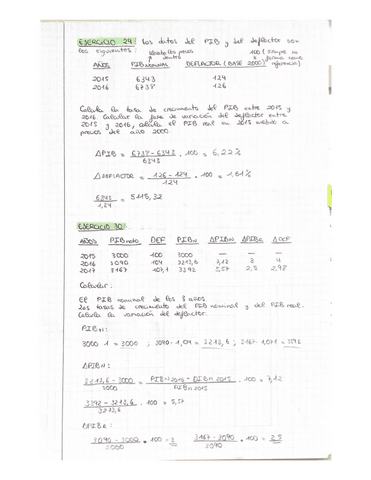 EJERCICIO 29: Los datos del PIB y del deflactor son
los siguientes:
100 (siempre se
AÑOS PIB NOMINAL DEFLACTOR (BASE 2000) referencia)
2015 6343 124
2016 6737 126
Calcula la tasa de crecimiento del PIB entre 2015 y
2016. Calcular la tasa de variación del deflactor entre
2015 y 2016, calcula el PIB real en 2015 medido a
precios del año 2000.
ΔPIB = 6737 - 6343 / 6343 · 100 = 6,22%
ΔDEFLACTOR = 126 - 124 / 124 · 100 = 1,61%
6343 / 1,24 = 5115,32
EJERCICIO 30:
AÑOS PIB DEF PIBN ΔPIBN ΔPIBR ΔDEF
2015 3000 100 3000 — — —
2016 3090 104 3213,6 7,12 3 4
2017 3167 107,1 3392 5,57 2,5 2,98
Calcular:
El PIB nominal de los 3 años.
Las tasas de crecimiento del PIB nominal y del PIB real.
Calcula la variación del deflactor.
PIBN:
3000 · 1 = 3000 ; 3090 · 1,04 = 3213,6 ; 3167 · 1,071 = 3392
ΔPIBN:
3213,6 - 3000 / 3000 = PIBN 2016 - PIBN 2015 / PIBN 2015 · 100 = 7,12
3392 - 3213,6 / 3213,6 · 100 = 5,57
ΔPIBR:
3090 - 3000 / 3000 · 100 = 3 3167 - 3090 / 3090 · 100 = 2,5